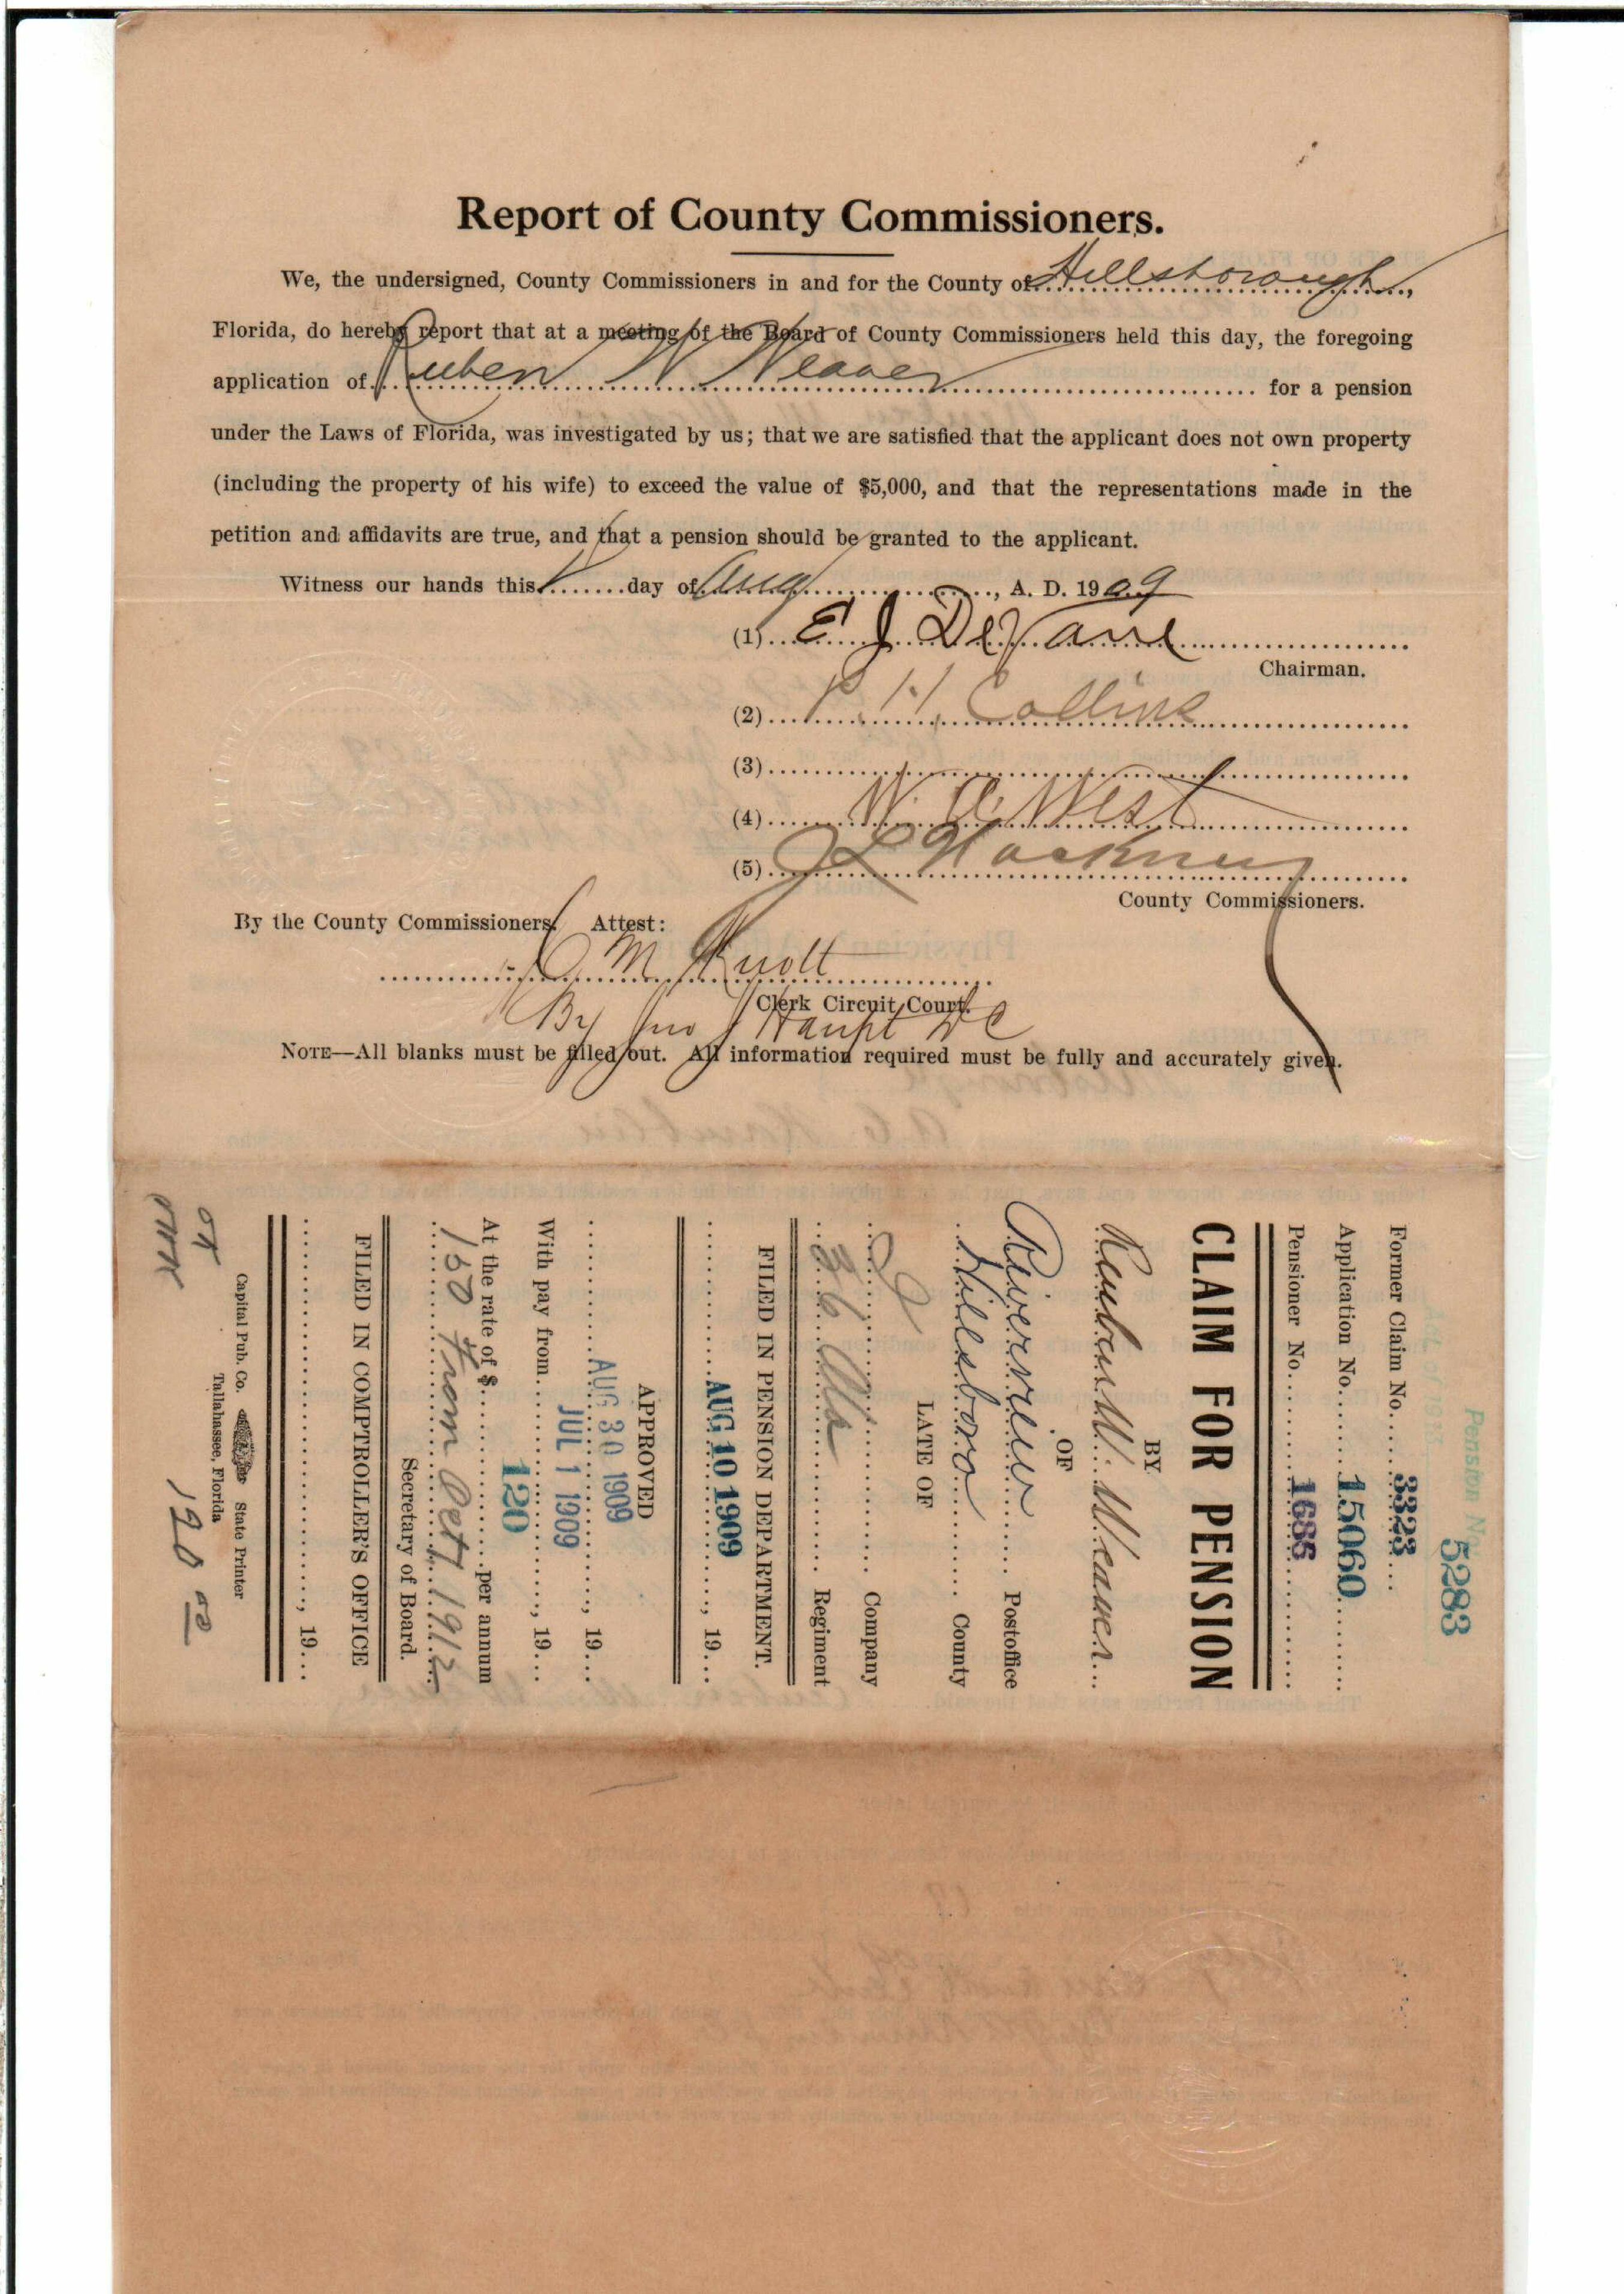 Report of County Commissioners.
We, the undersigned, County Commissioners in and for the County of Hillsborough,
Florida, do hereby report that at a meeting of the Board of County Commissioners held this day, the foregoing
application of Reuben W Weaver for a pension
under the Laws of Florida, was investigated by us; that we are satisfied that the applicant does not own property
(including the property of his wife) to exceed the value of $5,000, and that the representations made in the
petition and affidavits are true, and that a pension should be granted to the applicant.
Witness our hands this day of Aug, A. D. 1909
(1) E J DeVane
Chairman.
(2) Collins
(3)
(4) W. A. West
(5) J L Hackney
County Commissioners.
By the County Commissioners. Attest:
M Knott
Clerk Circuit Court.
By Jno J Haupt DC
NOTE—All blanks must be filled out. All information required must be fully and accurately given.
Pension No.
5283
Former Claim No. 3323
Application No. 15060
Pensioner No. 1686
CLAIM FOR PENSION
BY
Reuben W. Weaver
OF
Riverview Postoffice
Hillsboro County
LATE OF
Company
Ala Regiment
FILED IN PENSION DEPARTMENT.
AUG 10 1909, 19
APPROVED
AUG 30 1909, 19
With pay from JUL 1 1909, 19
At the rate of $ 120 per annum
150 from Oct 1 1912
Secretary of Board.
FILED IN COMPTROLLER'S OFFICE
, 19
Capital Pub. Co. State Printer
Tallahassee, Florida
120 00